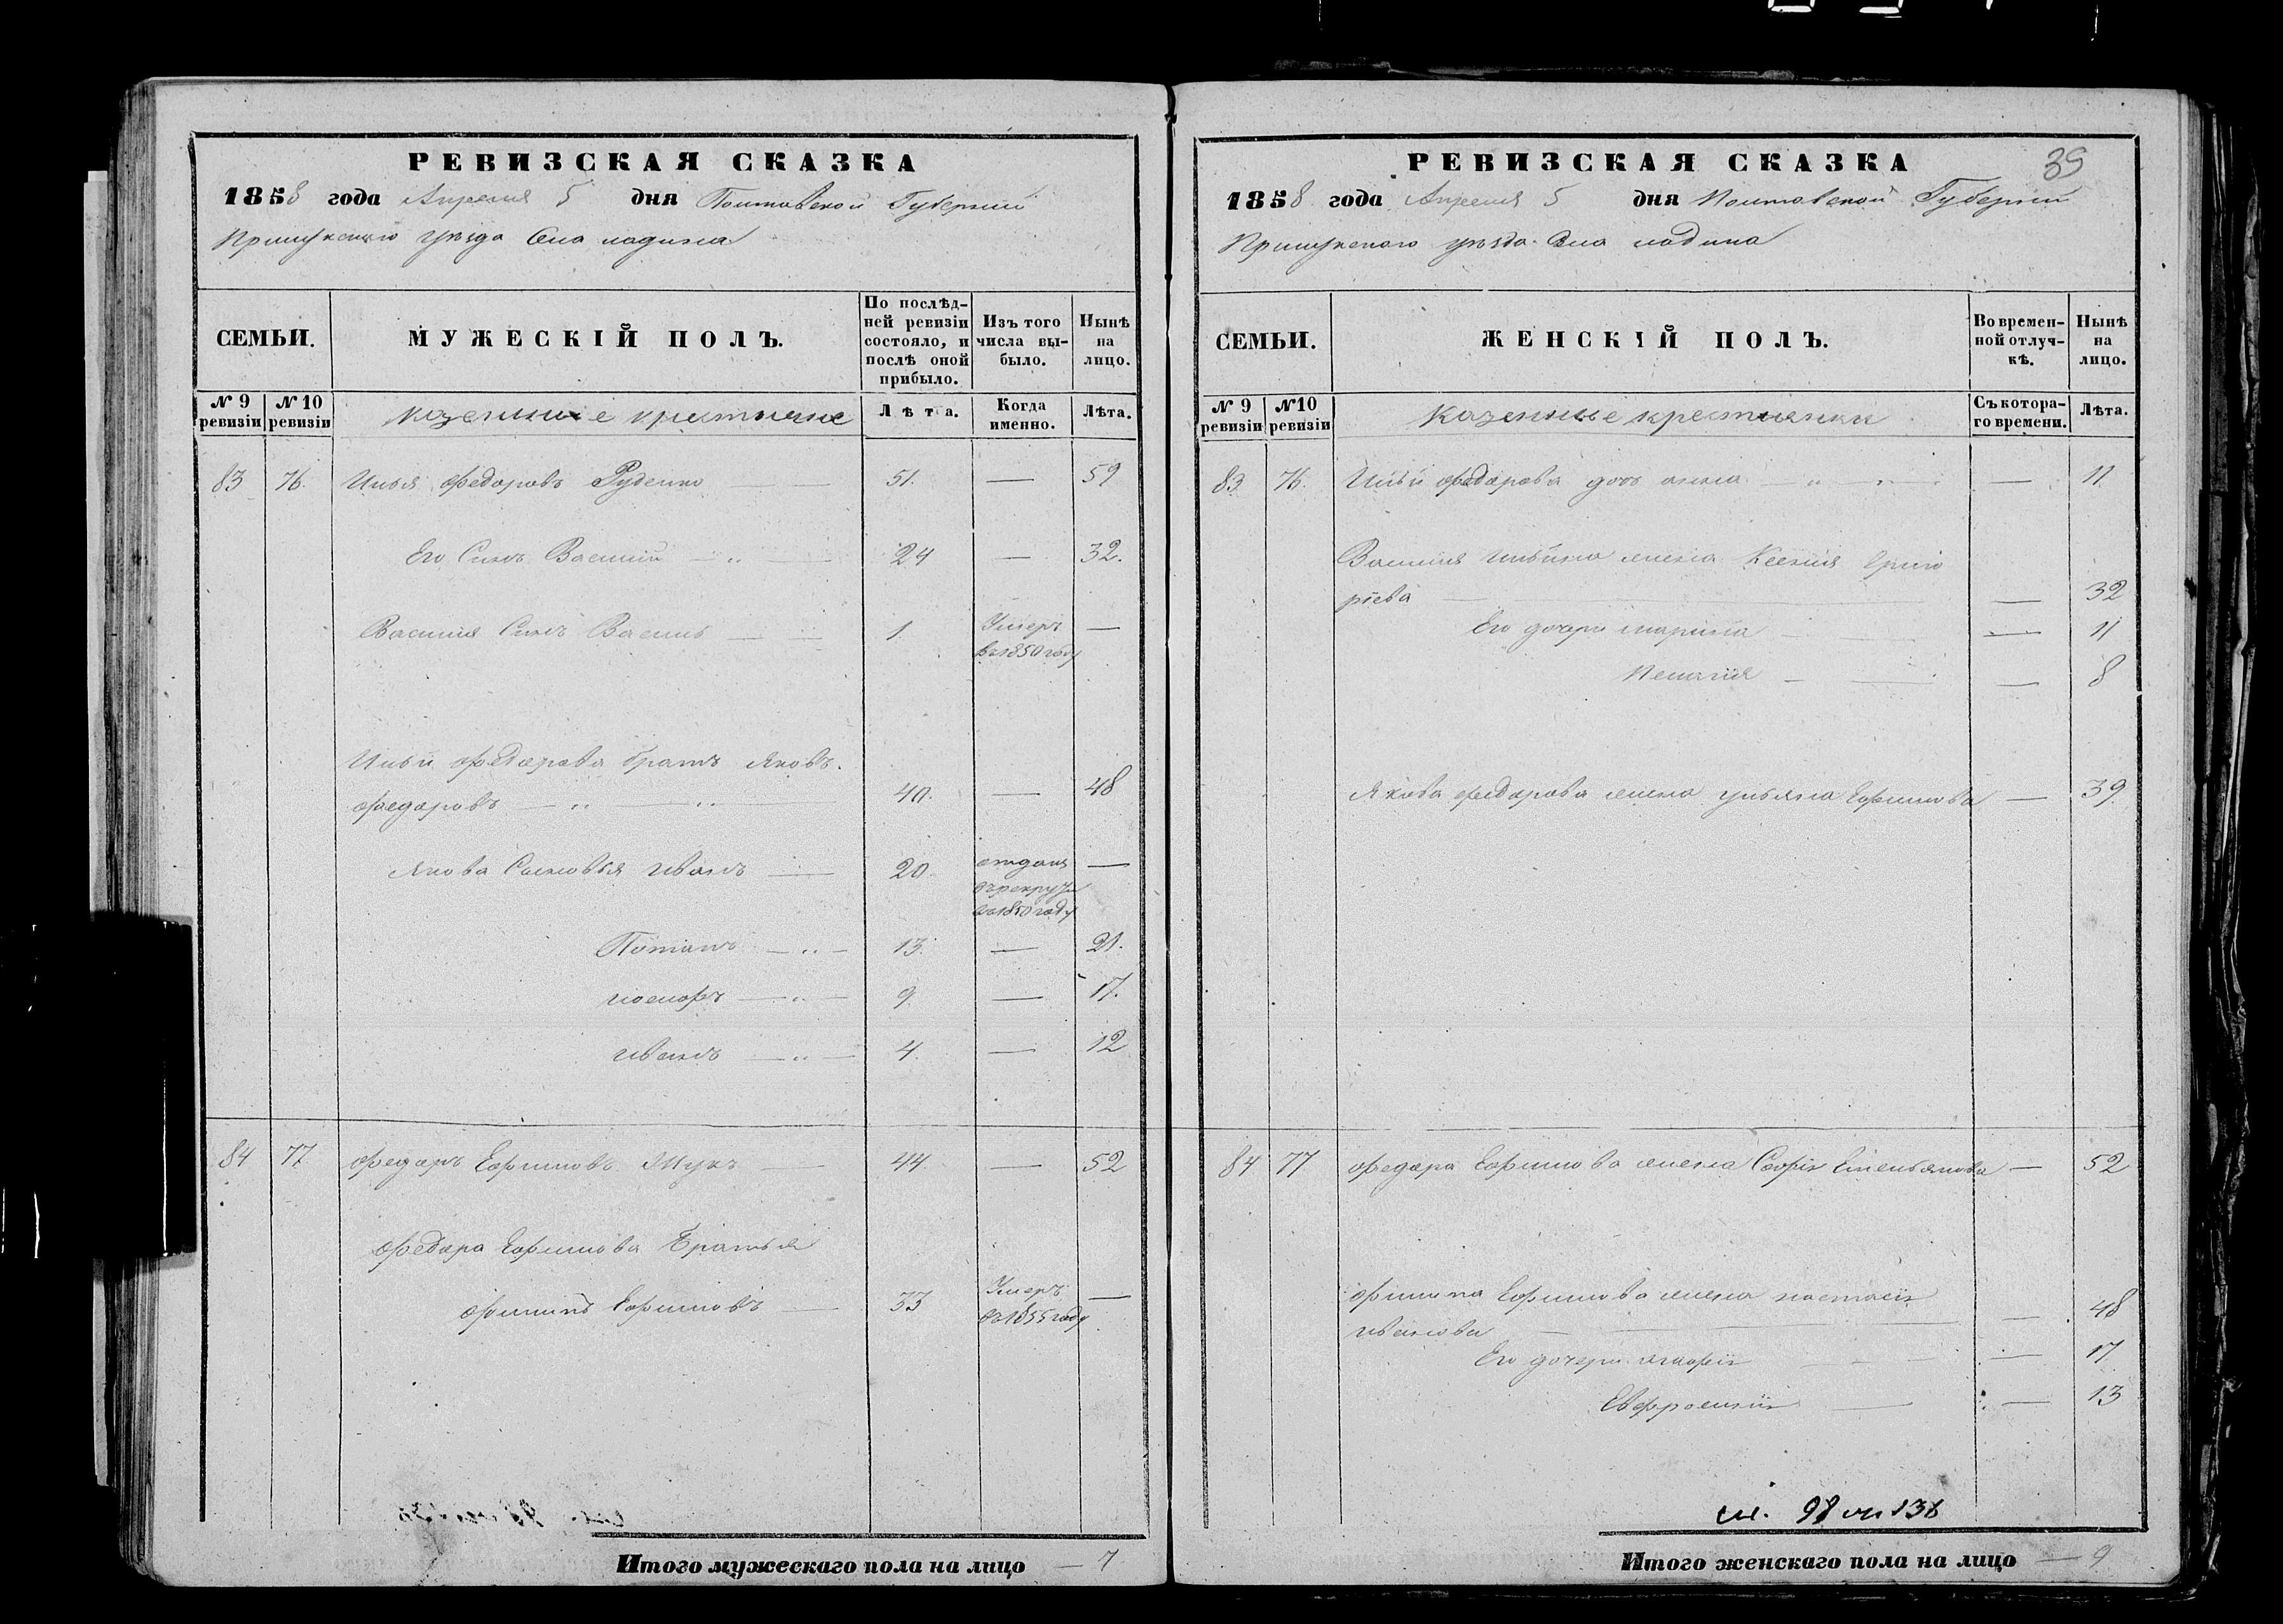 РЕВИЗСКАЯ СКАЗКА
1858 года Апреля 5 дня Полтавской Губернии
Прилукского уѣзда Села ладина
СЕМЬИ. МУЖЕСКІЙ ПОЛЪ. По послѣд-ней ревизіи состояло, и послѣ оной прибыло. Изъ того числа вы-было. Нынѣ на лицо.
№ 9 ревизіи № 10 ревизіи казенные крестьяне Лѣта. Когда именно. Лѣта.
83 76. Илья федоровъ Руденко 51. — 59
Его Сынъ Василий 24 — 32.
Василия Сынъ Василь 1. Умеръ —
въ 1850 году
Ильи федорова братъ яковъ.
федоровъ 40. — 48
якова Сыновья иванъ 20. отданъ —
въ рекруты
въ 1850 году
Потапъ 13. — 21.
иосифъ 9. — 17.
иванъ 4. — 12
84 77 федоръ Ефимовъ Жукъ 44. — 52
федора Ефимова Братья
филипъ Ефимовъ 33 Умеръ —
въ 1855 году
Итого мужескаго пола на лицо — 7
РЕВИЗСКАЯ СКАЗКА 39
1858 года Апреля 5 дня Полтавской Губернии
Прилукского уѣзда Села ладина
СЕМЬИ. ЖЕНСКІЙ ПОЛЪ. Во времен-ной отлуч-кѣ. Нынѣ на лицо.
№ 9 ревизіи № 10 ревизіи казенные крестьянки Съ котора-го времени. Лѣта.
83. 76. Ильи федорова дочь анна — 11
Василия ильина жена Ксения Григо
рiева — 32
Его дочери марина — 11
Пелагия — 8
Якова федорова жена ульяна Ефимова — 39.
84 77 федора Ефимова жена Софiя Емельянова — 52
филипа Ефимова жена настасiя
иванова — 48
Его дочери 17
Евфросинiя — 13
98 136
Итого женскаго пола на лицо — 9